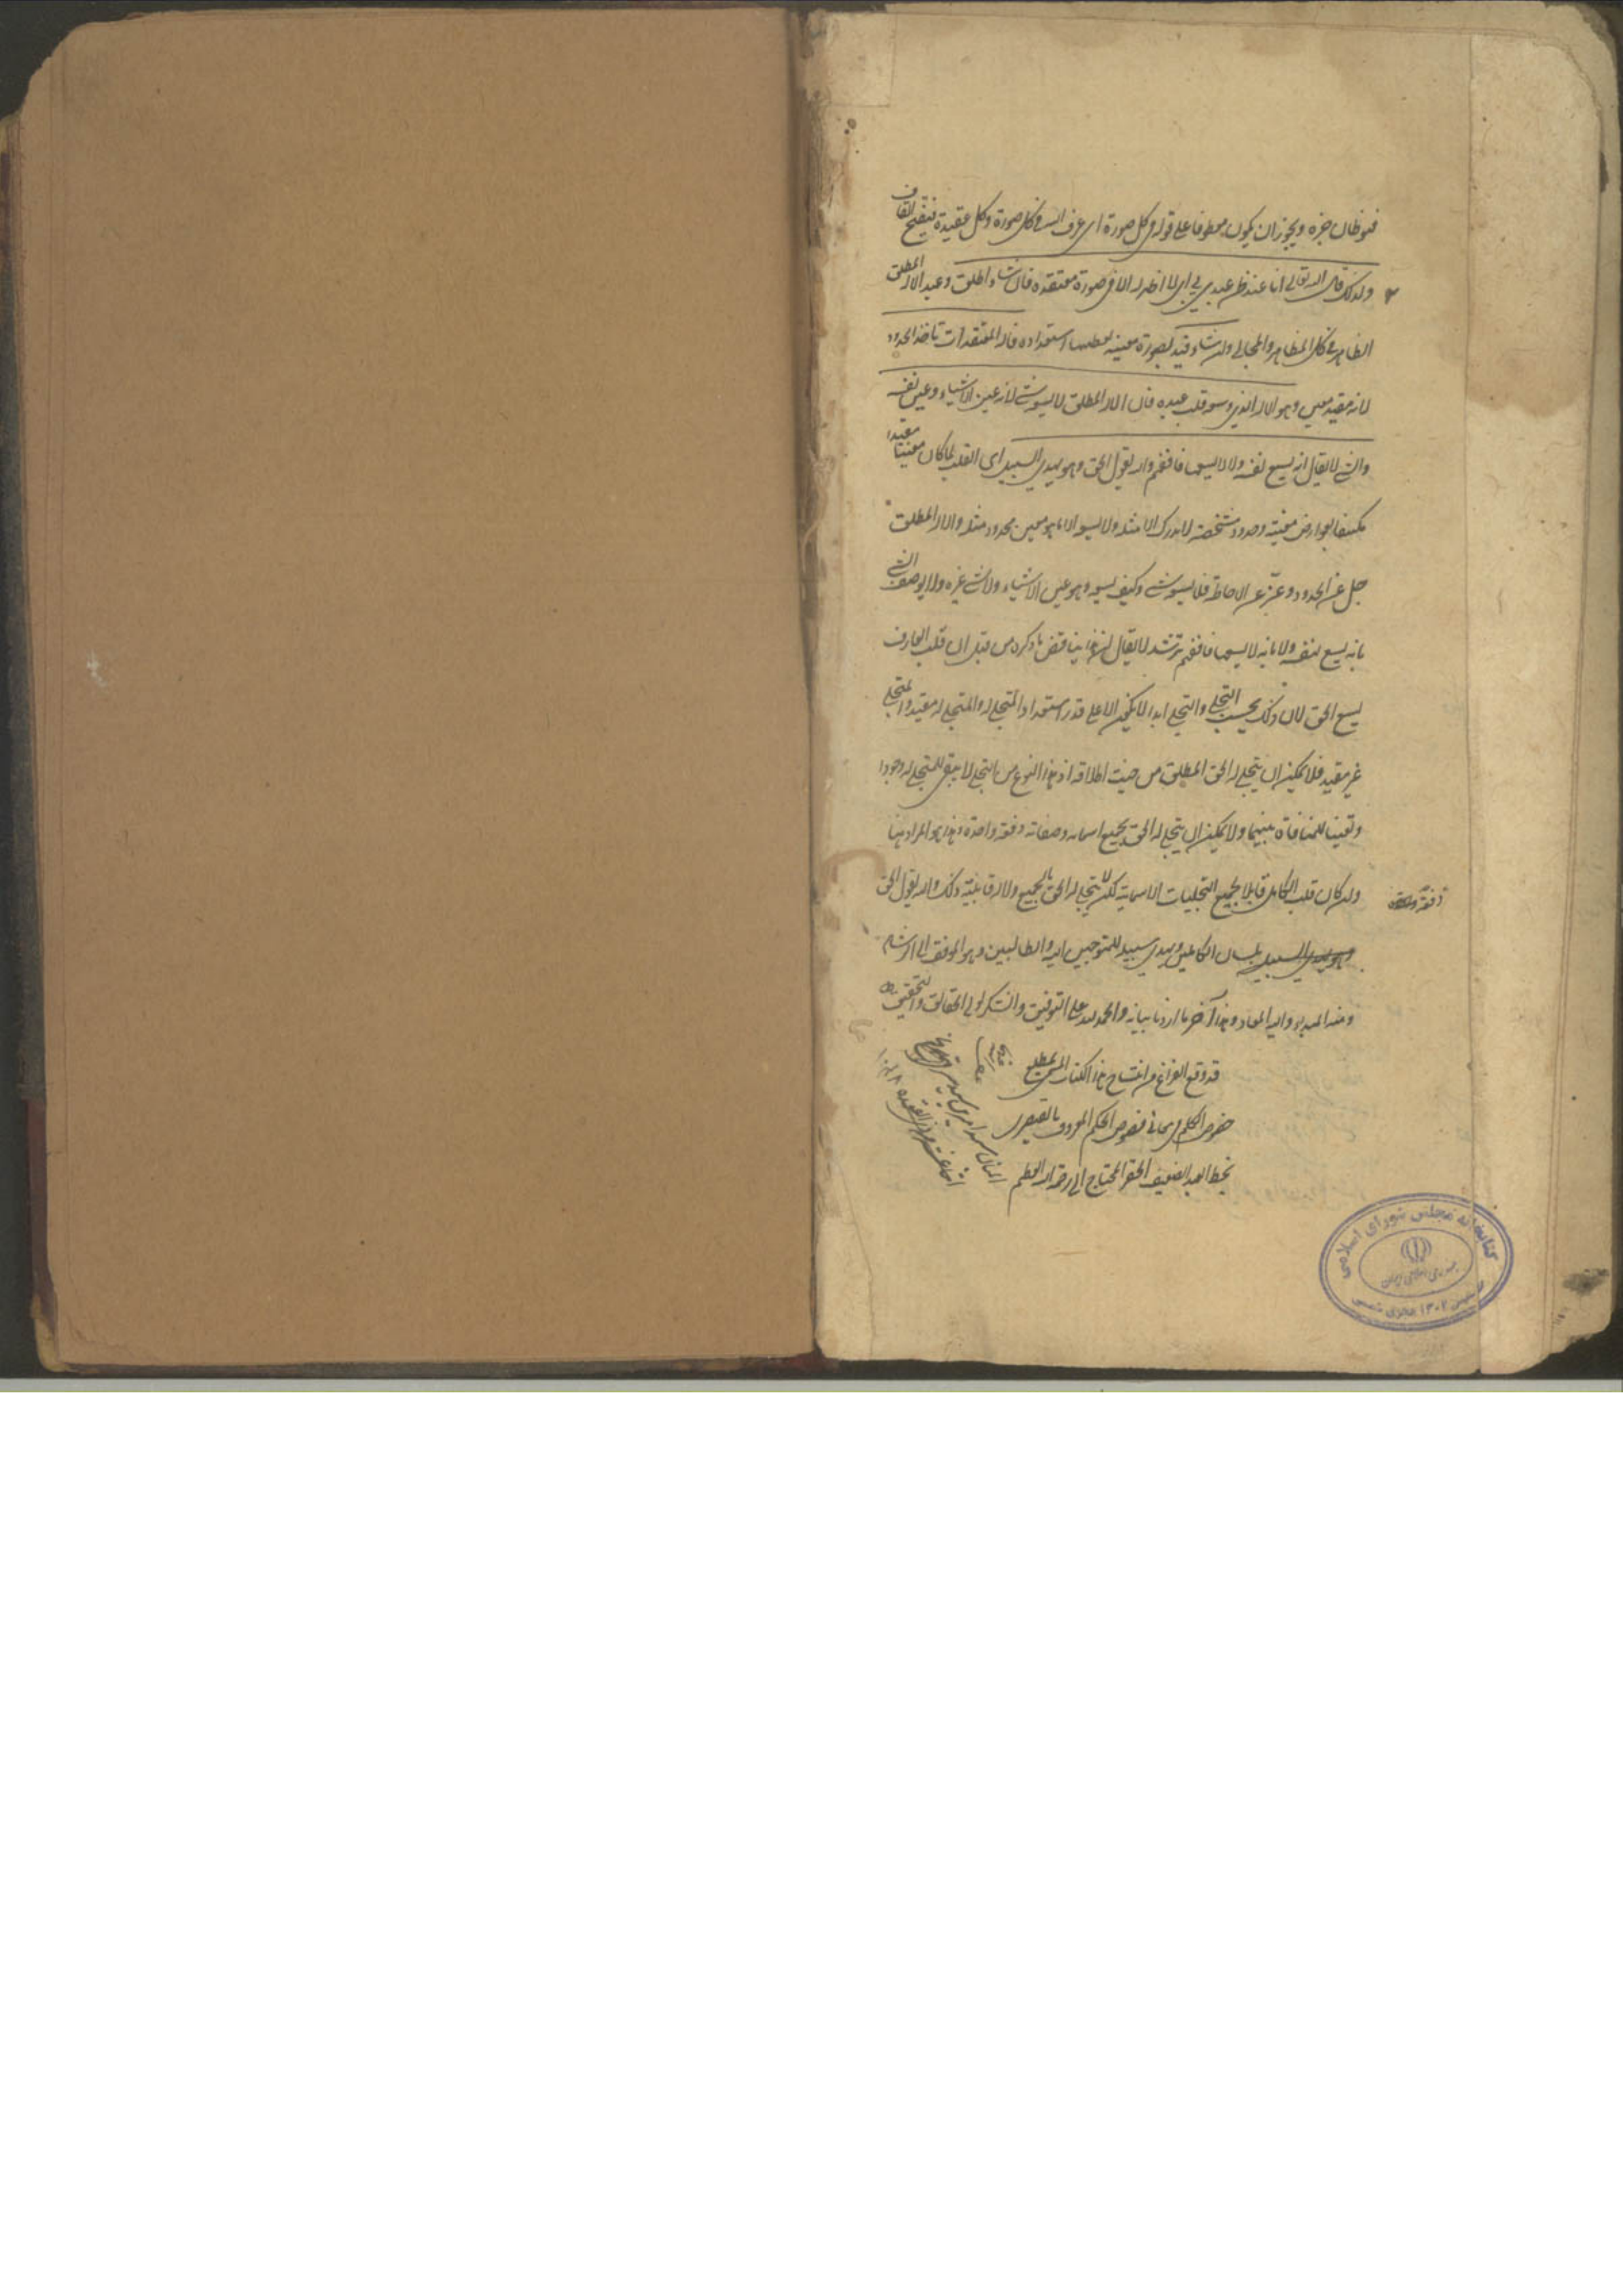 فهو ظان خبره ويجوز ان يكون معطوفا على قوله في كل صورة اى عرف الله في كل صورة وكل عقيدة فيفتح القاف
ولذلك قال الله تعالى انا عند ظن عبدي بي اى لا اظهر له الا في صورة معتقده فان شاء اطلق وعبد الاله المطلق
الظاهر في كل المظاهر والمجالى وان شاء قيد بصورة معينه يعطيها استعداده فاله المعتقدات تاخذه الحدود
لانه مقيد معين وهو الاله الذي وسعه قلب عبده فان الاله المطلق لا يسعه شئ لانه عين الاشياء وعين نفسه
والشئ لا يقال انه يسع نفسه ولا لا يسعها فافهم والله يقول الحق وهو يهدي السبيل اى القلب لما كان معينا مقيدا
مكتنفا بعوارض معينة وحدود مشخصة لا يدرك الا مثله ولا يسع الا ما هو معين محدود مثله والاله المطلق
جل عن الحدود وعز عن الاحاطة فلا يسعه شئ وكيف يسعه وهو عين الاشياء ولا شئ غيره ولا يوصف الشئ
بانه يسع نفسه ولا بانه لا يسعها فافهم ترشد لا يقال ان هذا يناقض ما ذكره من قبل ان قلب العارف
يسع الحق لان ذلك بحسب التجلي والتجلي ابدا لا يكون الا على قدر استعداد المتجلى له والمتجلى له مقيد والمتجلي
غير مقيد فلا يمكن ان يتجلى له الحق المطلق من حيث اطلاقه اذ هذا النوع من التجلي لا يبقى للمتجلى له وجودا
وتعينا للمنافاة بينهما ولا يمكن ان يتجلى له الحق بجميع اسمائه وصفاته دفعة واحدة وهذا هو المراد هنا
وان كان قلب الكامل قابلا لجميع التجليات الاسمائية لكن لا يتجلى له الحق بالجميع ولا له قابلية ذلك والله يقول الحق
دفعة واحدة
وهو يهدي السبيل بلسان الكاملين ويهدي سبيله للمتوجهين اليه والطالبين وهو الموفق الى الرشاد
ومنه المبدء واليه المعاد وهذا آخر ما اردنا بيانه والحمد لله على التوفيق والشكر لولي الحقائق والتحقيق
قد وقع الفراغ من انتساخ هذا الكتاب المسمى بمطلع
خصوص الكلم في معاني فصوص الحكم المعروف بالقيصرى
بخط العبد الضعيف الحقير المحتاج الى رحمة الله العظيم
كتابخانه مجلس شورای اسلامی
جمهوری اسلامی ایران
تأسیس ۱۳۰۲ هجری شمسی